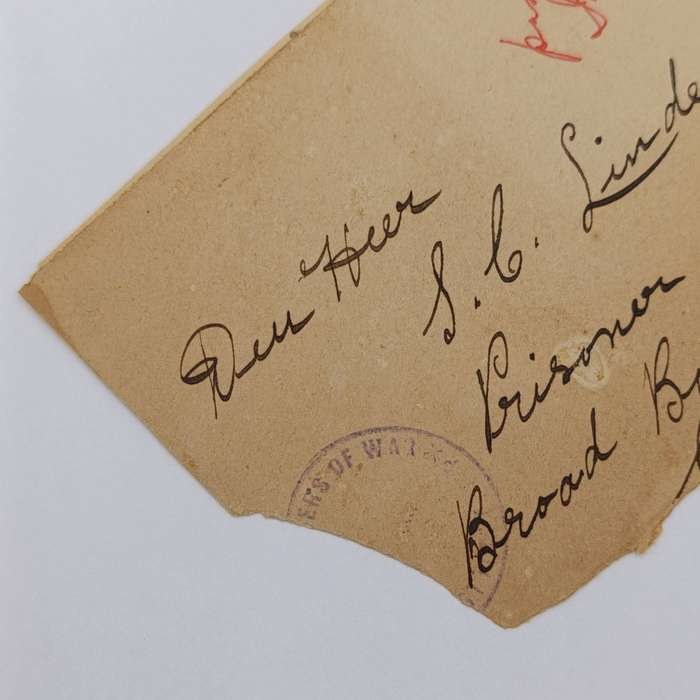 Den Heer
S. C. Linde
Prisoner
Broad B
ERS OF WAR